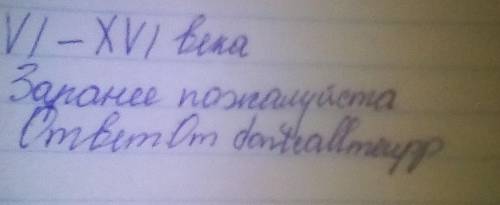 VI – XVI века
Заранее пожалуйста
Ответ От dontcallmeupp